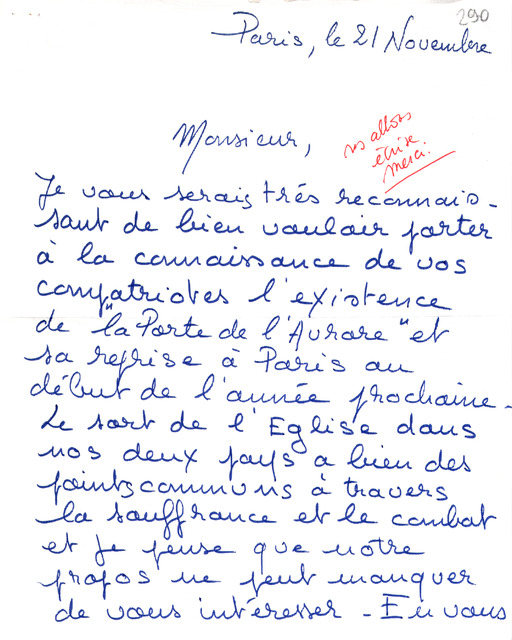 290
Paris, le 21 Novembre
Monsieur,
ns allons
écrire
merci.
Je vous serais très reconnais-
sant de bien vouloir porter
à la connaissance de vos
compatriotes l'existence
de "la Porte de l'Aurore" et
sa reprise à Paris au
début de l'année prochaine.
Le sort de l'Eglise dans
nos deux pays a bien des
points communs à travers
la souffrance et le combat
et je pense que notre
propos ne peut manquer
de vous intéresser - En vous